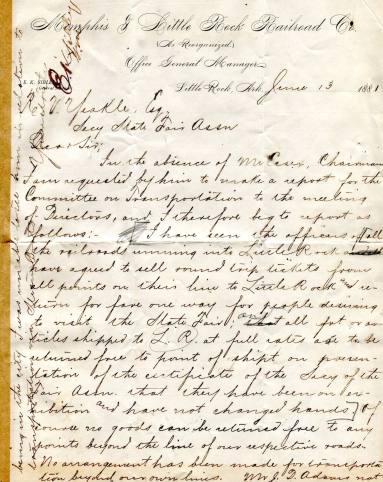 Memphis & Little Rock Railroad Co.
(As Reorganized)
Office General Manager
Little Rock, Ark, June 13 1881
Yeakle, Esq
Secy State Fair Assn
Dear Sir,
In the absence of Mr Chairman
I am requested by him to make a report for the
Committee on Transportation to the meeting
of Directors, and I therefore beg to report as
follows:- I have seen the officers of all
the railroads running into Little Rock and
have agreed to sell round trip tickets from
all points on their line to Little Rock and re-
turn for fare one way for people desiring
to visit the State Fair; and that all frt or ar-
ticles shipped to L. R. at full rates are to be
returned free to point of shipt on presen-
tation of the certificate of the Secy of the
Fair Assn. that they have been on ex-
hibition and have not changed hands, Of
course no goods can be returned free to any
points beyond the line of our respective roads.
No arrangement has been made for transporta-
tion beyond our own lines. Mr J. D. Adams not
being in the city I was